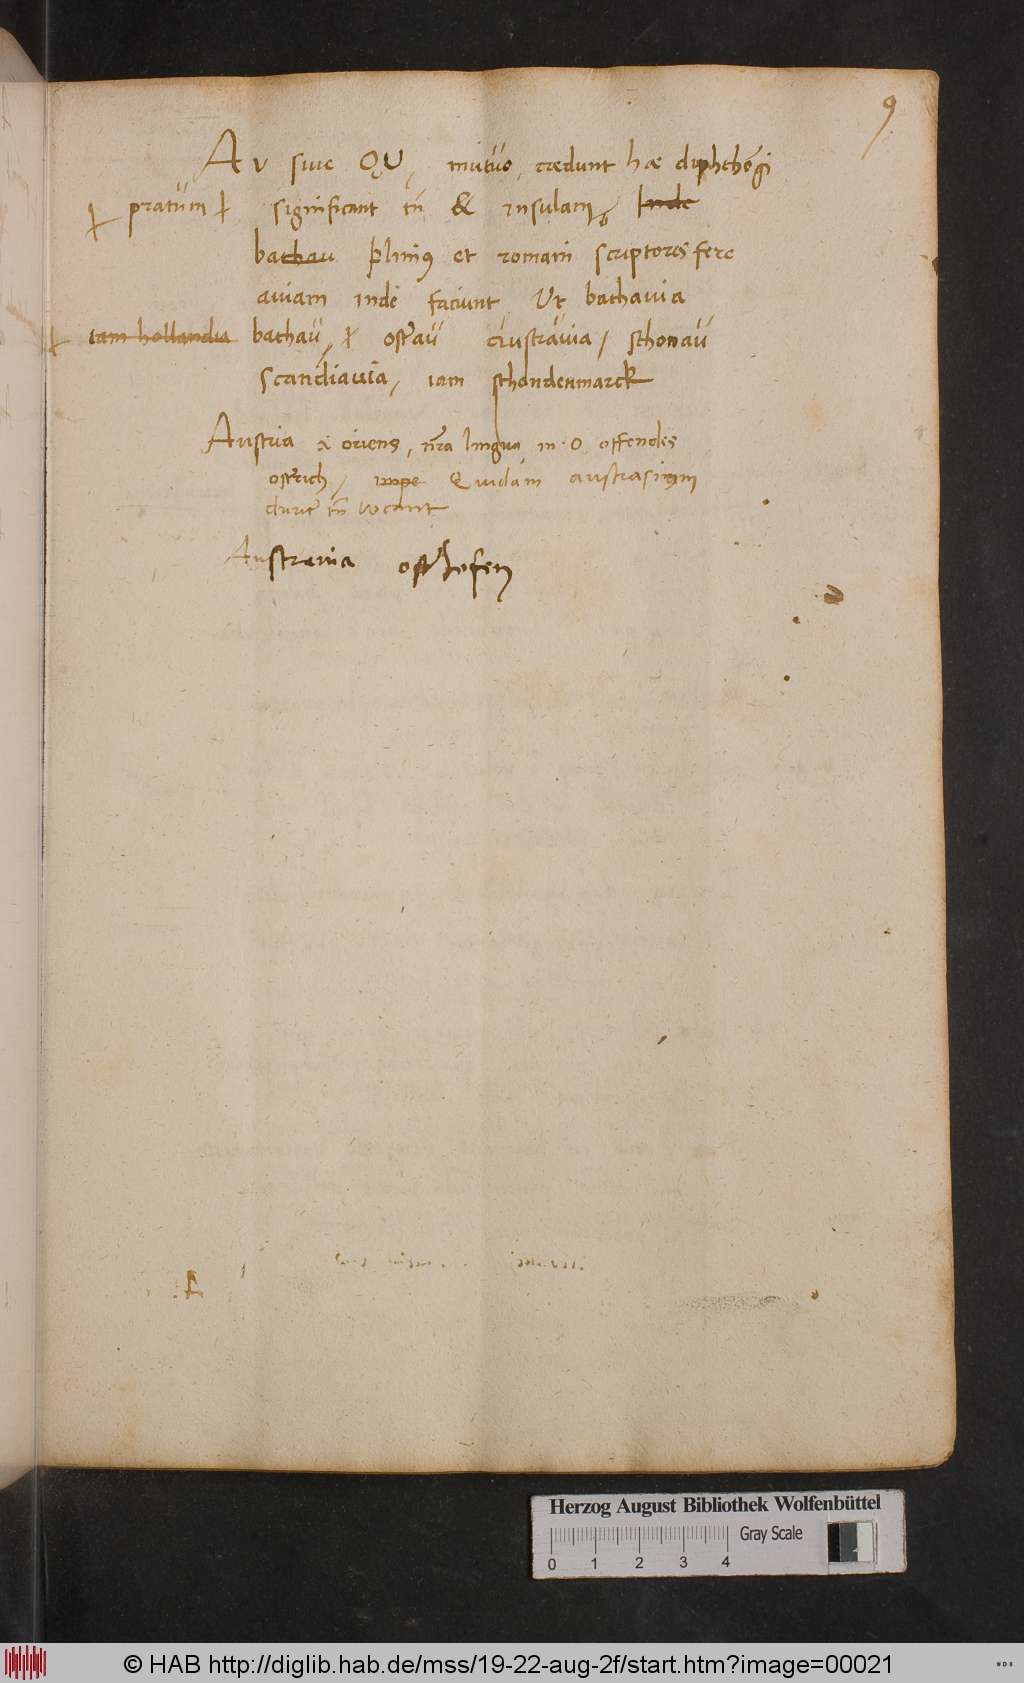 9
Au siue OU, mutuo cædunt hæ diphthōgi
pratum significant tn̄ & insulam, Inde
bathau plinius et romani scriptores fere
auiam inde faciunt, Ut bathauia
iam hollandia bathau, osterau austrauia, schonau
scandiauia, iam schondenmarck
Austria oriens, nr̄a lingua in O offendes
osterich, Quidam austrasium
tn̄ vocant
Austrauia osterhofen
Herzog August Bibliothek Wolfenbüttel
Gray Scale
0 1 2 3 4
© HAB http://diglib.hab.de/mss/19-22-aug-2f/start.htm?image=00021